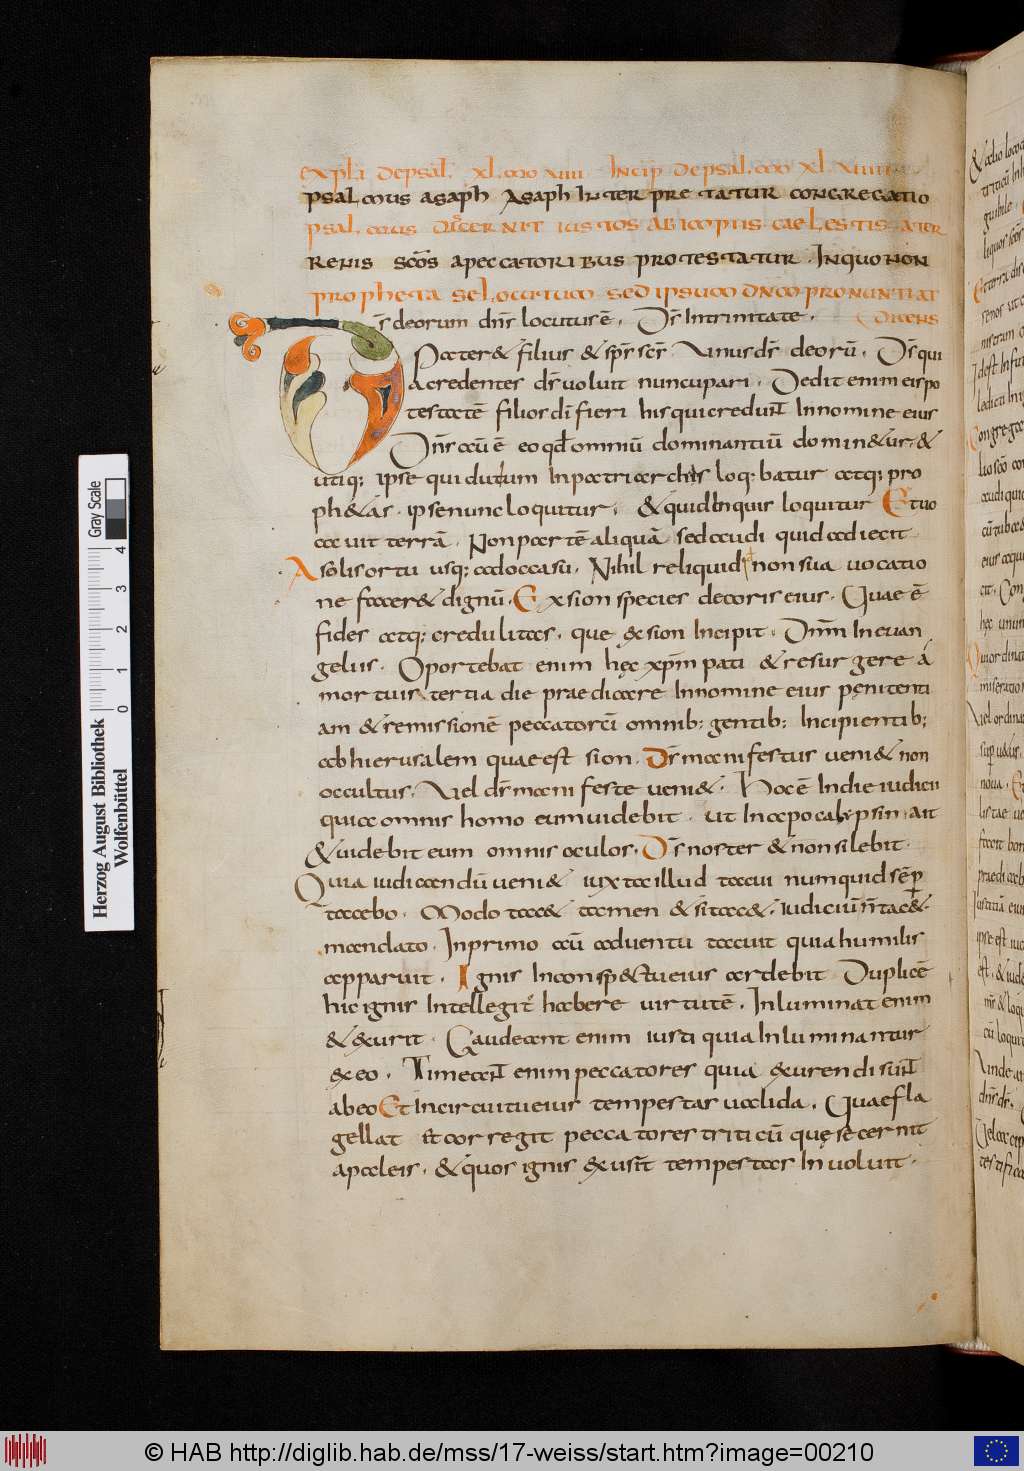 Expłi de psał. xl. mo viiii Incip de psal. mo xl. viiii
psalmus asaph Asaph Interpretatur congregatio
psalmus discernit iustos ab ipsis caelestis a ter
renis scōs apeccatoribus protestatur. Inquo non
propheta se locutum sed ipsum dnm pronuntiat
dicens
D s̄ deorum dn̄s locutus ē. Ds̄ Intrinitate.
Pater & filius & sp̄s sc̄s. Unus ds̄ deorū. Ds̄ qui
a credentes ds̄ uoluit nuncupari. Dedit enim eis po
testatē filios dī fieri his qui credun̄t Innomine eius
Dn̄s cū ē eo qđ omniū dominantiū domin&ur. &
utiq; ipse qui dudum Inpatriarchis loq;batur atq; pro
ph&as. ipse nunc loquitur. & quid Inquis loquitur Et uo
cauit terrā. Non partē aliquā sed audi quid adiecit
A solis ortu usq; adoccasū. Nihil reliquid non sua uocatio
ne facer& dignū. Ex sion species decoris eius. Quae ē
fides atq; credulitas. que exsion Incipit. Dn̄m Ineuan
gelius. Oportebat enim hęc xp̄m pati & resurgere á
mortuis tertia die praedicare Innomine eius pęnitenti
am & remissionē peccatorū omnib; gentib; Incipientib;
ab hierusalem quae est sion. Ds̄ manifestus ueni& non
occultus. Uel ds̄ manifeste ueni&. Hoc ē Indie iudicii
quia omnis homo eum uidebit. ut Inapocalypsin ait
& uidebit eum omnis oculos. Ds̄ noster & non silebit.
Quia iudicandū ueni& iuxta illud tacui numquid sēp
tacebo. Modo tac& tamen & si tac&. iudiciū n̄ tac&.
mandato. Inprimo aū aduentu tacuit quia humilis
apparuit. Ignis Inconsp&u eius ardebit Duplicē
hic ignis Intellegit habere uirtutē. Inluminat enim
& exurit. Gaudeant enim iusti quia Inluminantur
ex eo. Timean̄t enim peccatores quia exurendi sun̄t
abeo Et Incircuitu eius tempestas ualida. Quae fla
gellat & corregit peccatores triticū quę secernit
a paleis. & quos ignis exusit tempestas Inuoluit.
Herzog August Bibliothek
Wolfenbüttel
Gray Scale
0 1 2 3 4
© HAB http://diglib.hab.de/mss/17-weiss/start.htm?image=00210